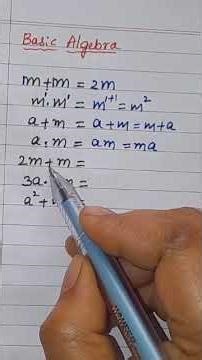 Basic Algebra
m+m = 2m
m¹.m¹ = m¹⁺¹ = m²
a+m = a+m = m+a
a.m = am = ma
2m+m =
3a. m =
a²+